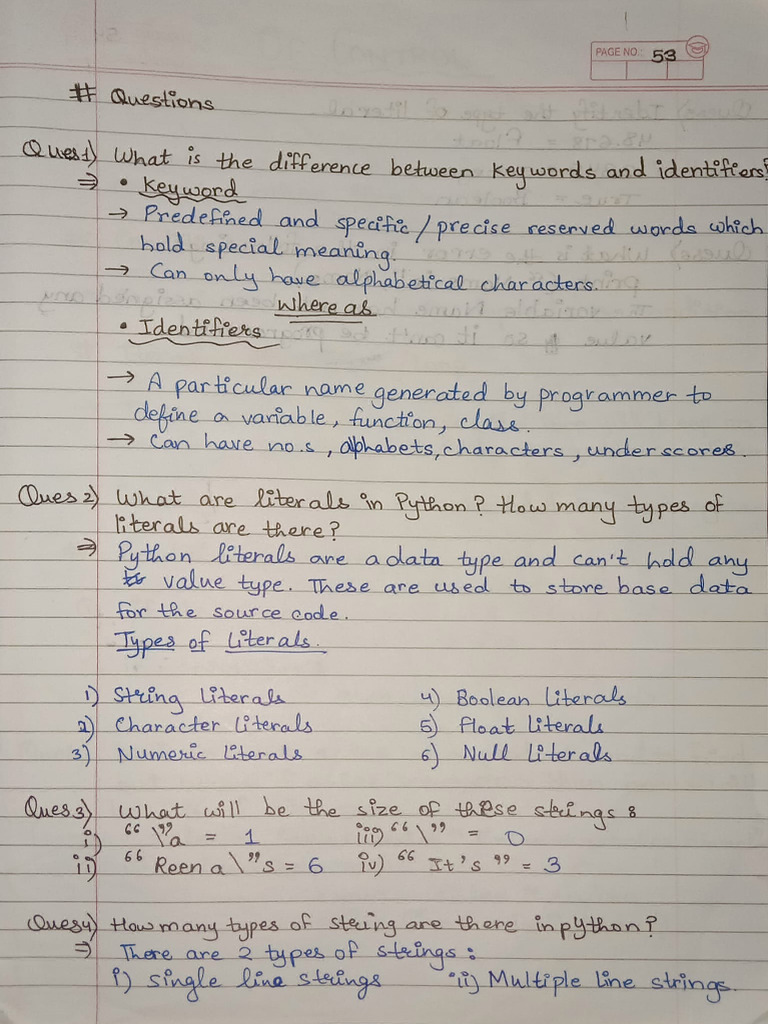 PAGE NO.: 53
# Questions
Ques1) What is the difference between Keywords and identifiers?
⇒ • Keyword
→ Predefined and specific/precise reserved words which
hold special meaning.
→ Can only have alphabetical characters.
Where as
• Identifiers
→ A particular name generated by programmer to
define a variable, function, class.
→ Can have no.s, alphabets, characters, underscores.
Ques 2) What are literals in Python? How many types of
literals are there?
⇒ Python literals are a data type and can't hold any
value type. These are used to store base data
for the source code.
Types of Literals.
1) String Literals 4) Boolean Literals
2) Character Literals 5) Float Literals
3) Numeric Literals 6) Null Literals
Ques3) What will be the size of these strings :
i) "\"a = 1 iii) "\" = 0
ii) "Reena\"s = 6 iv) "It's" = 3
Ques4) How many types of string are there in python?
⇒ There are 2 types of strings :
i) single line strings ii) Multiple line strings.